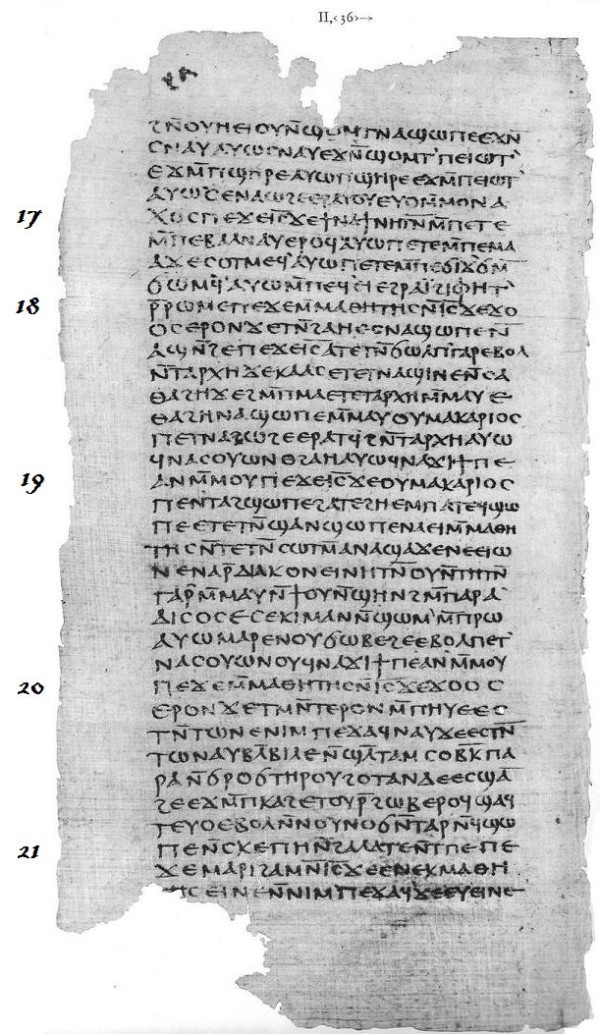 ⲕ̅ⲇ̅
ϩⲛ̄ⲟⲩⲏⲉⲓⲟⲩⲛ̄ϣⲟⲙⲧⲛⲁϣⲱⲡⲉⲉϫⲛ̄
ⲥⲛⲁⲩⲁⲩⲱⲥⲛⲁⲩⲉϫⲛ̄ϣⲟⲙⲧ'ⲡⲉⲓⲱⲧ'
ⲉϫⲙ̄ⲡϣⲏⲣⲉⲁⲩⲱⲡϣⲏⲣⲉⲉϫⲙ̄ⲡⲉⲓⲱⲧ'
ⲁⲩⲱⲥⲉⲛⲁⲱϩⲉⲉⲣⲁⲧⲟⲩⲉⲩⲟⲙ̄ⲙⲟⲛⲁ
17 ⲭⲟⲥⲡⲉϫⲉⲓ̄ⲥ̄ϫⲉϯⲛⲁϯⲛⲏⲧⲛ̄ⲙ̄ⲡⲉⲧⲉ
ⲙ̄ⲡⲉⲃⲁⲗⲛⲁⲩⲉⲣⲟϥ'ⲁⲩⲱⲡⲉⲧⲉⲙ̄ⲡⲉⲙⲁ
ⲁϫⲉⲥⲟⲧⲙⲉϥ'ⲁⲩⲱⲡⲉⲧⲉⲙ̄ⲡⲉϭⲓϫ'ϭⲙ̄
ϭⲱⲙϥ̄'ⲁⲩⲱⲙ̄ⲡⲉϥ'ⲉⲓⲉϩⲣⲁⲓ̈ϩⲓⲫⲏⲧ'
18 ⲣ̄ⲣⲱⲙⲉⲡⲉϫⲉⲙ̄ⲙⲁⲑⲏⲧⲏⲥⲛ̄ⲓ̄ⲥ̄ϫⲉϫⲟ
ⲟⲥⲉⲣⲟⲛϫⲉⲧⲛ̄ϩⲁⲏⲉⲥⲛⲁϣⲱⲡⲉⲛ̄
ⲁϣⲛ̄ϩⲉⲡⲉϫⲉⲓ̄ⲥ̄ⲁⲧⲉⲧⲛ̄ϭⲱⲗⲡ'ⲅⲁⲣⲉⲃⲟⲗ
ⲛ̄ⲧⲁⲣⲭⲏϫⲉⲕⲁⲁⲥⲉⲧⲉⲧⲛⲁϣⲓⲛⲉⲛ̄ⲥⲁ
ⲑⲁϩⲏϫⲉϩⲙ̄ⲡⲙⲁⲉⲧⲉⲧⲁⲣⲭⲏⲙ̄ⲙⲁⲩⲉ
ⲑⲁϩⲏⲛⲁϣⲱⲡⲉⲙ̄ⲙⲁⲩⲟⲩⲙⲁⲕⲁⲣⲓⲟⲥ
ⲡⲉⲧⲛⲁϩⲱϩⲉⲉⲣⲁⲧϥ̄ϩⲛ̄ⲧⲁⲣⲭⲏⲁⲩⲱ
ϥⲛⲁⲥⲟⲩⲱⲛⲑϩⲁⲏⲁⲩⲱϥⲛⲁϫⲓϯⲡⲉ
19 ⲁⲛⲙ̄ⲙⲟⲩⲡⲉϫⲉⲓ̄ⲥ̄ϫⲉⲟⲩⲙⲁⲕⲁⲣⲓⲟⲥ
ⲡⲉⲛⲧⲁϩϣⲱⲡⲉϩⲁⲧⲉϩⲏⲉⲙⲡⲁⲧⲉϥϣⲱ
ⲡⲉⲉⲧⲉⲧⲛ̄ϣⲁⲛϣⲱⲡⲉⲛⲁⲉⲓⲙ̄ⲙⲁⲑⲏ
ⲧⲏⲥⲛ̄ⲧⲉⲧⲛ̄ⲥⲱⲧⲙ̄ⲁⲛⲁϣⲁϫⲉⲛⲉⲉⲓⲱ
ⲛⲉⲛⲁⲣ̄ⲇⲓⲁⲕⲟⲛⲉⲓⲛⲏⲧⲛ̄ⲟⲩⲛ̄ⲧⲏⲧⲛ̄
ⲅⲁⲣ'ⲙ̄ⲙⲁⲩⲛ̄ϯⲟⲩⲛ̄ϣⲏⲛϩⲙ̄ⲡⲁⲣⲁ
ⲇⲓⲥⲟⲥⲉⲥⲉⲕⲓⲙⲁⲛⲛ̄ϣⲱⲙ'ⲙ̄ⲡⲣⲱ
ⲁⲩⲱⲙⲁⲣⲉⲛⲟⲩϭⲱⲃⲉϩⲉⲉⲃⲟⲗⲡⲉⲧ'
ⲛⲁⲥⲟⲩⲱⲛⲟⲩϥⲛⲁϫⲓϯⲡⲉⲁⲛⲙ̄ⲙⲟⲩ
20 ⲡⲉϫⲉⲙ̄ⲙⲁⲑⲏⲧⲏⲥⲛ̄ⲓ̄ⲥ̄ϫⲉϫⲟⲟⲥ
ⲉⲣⲟⲛϫⲉⲧⲙⲛ̄ⲧⲉⲣⲟⲛⲙ̄ⲡⲏⲩⲉⲉⲥ
ⲧⲛ̄ⲧⲱⲛⲉⲛⲓⲙⲡⲉϫⲁϥⲛⲁⲩϫⲉⲉⲥⲧⲛ̄
ⲧⲱⲛⲁⲩⲃⲗ̄ⲃⲓⲗⲉⲛ̄ϣⲗ̄ⲧⲁⲙⲥⲟⲃⲕ̄ⲡⲁ
ⲣⲁⲛ̄ϭⲣⲟϭⲧⲏⲣⲟⲩϩⲟⲧⲁⲛⲇⲉⲉⲥϣⲁ
ϩⲉⲉϫⲙ̄ⲡⲕⲁϩⲉⲧⲟⲩⲣ̄ϩⲱⲃⲉⲣⲟϥϣⲁϥ
ⲧⲉⲩⲟⲉⲃⲟⲗⲛ̄ⲛⲟⲩⲛⲟϭⲛ̄ⲧⲁⲣⲛ̄ϥϣⲱ
ⲡⲉⲛ̄ⲥⲕⲉⲡⲏⲛ̄ϩⲁⲗⲁⲧⲉⲛ̄ⲧⲡⲉⲡⲉ
21 ϫⲉⲙⲁⲣⲓϩⲁⲙⲛ̄ⲓ̄ⲥ̄ϫⲉⲉⲛⲉⲕⲙⲁⲑⲏ
ⲧⲏⲥⲉⲓⲛⲉⲛ̄ⲛⲓⲙⲡⲉϫⲁϥ'ϫⲉⲉⲩⲉⲓⲛⲉ